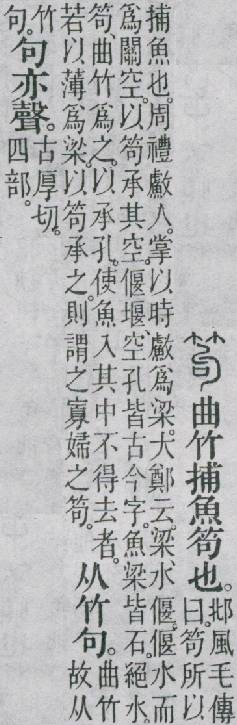 笱曲竹捕魚笱也。邶風毛傳
曰。笱所以
捕魚也。周禮䱷人。掌以時䱷爲梁。大鄭云。梁、水偃。偃水而
爲關空。以笱承其空。偃堰、空孔皆古今字。魚梁皆石絕水
笱、曲竹爲之。以承孔。使魚入其中不得去者。
若以薄爲梁。以笱承之。則謂之寡婦之笱。
从竹句。曲竹
故从
竹
句。
句亦聲。古厚切。
四部。